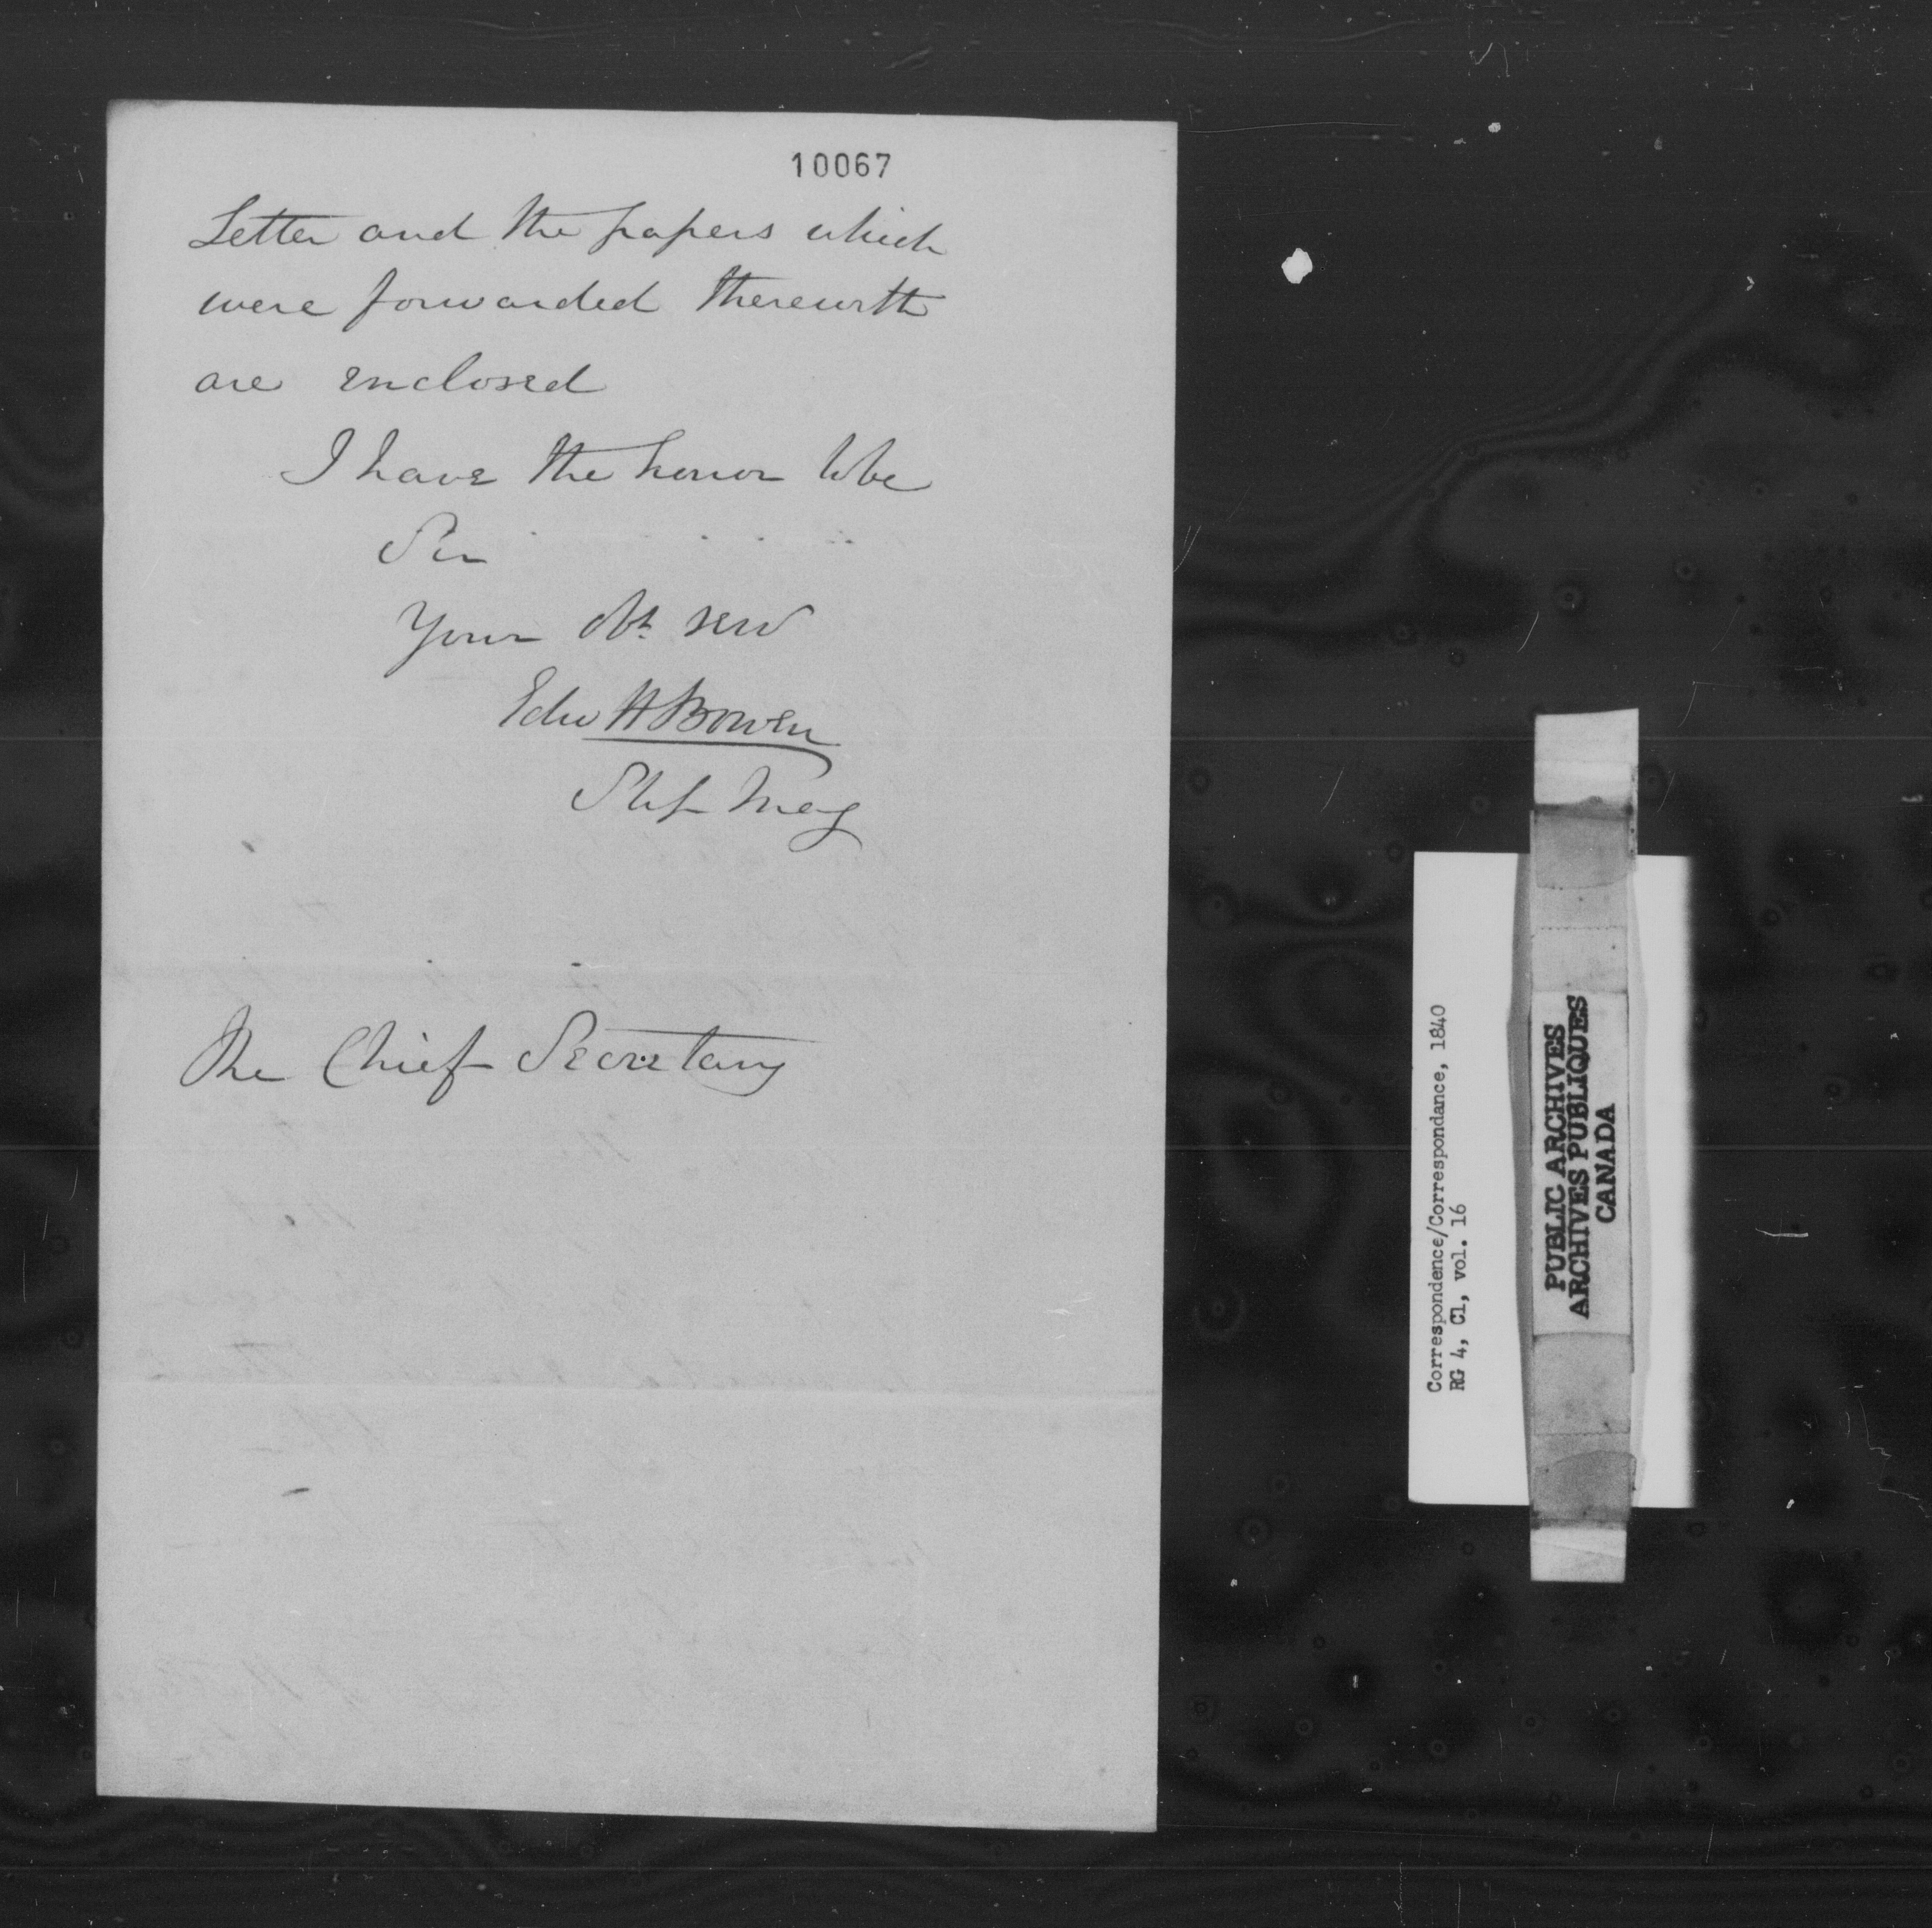 10067
Letter and the papers which
were forwarded therewith
are enclosed
I have the honor to be
Sir
Your Obt Serv
Edw H Bowen
The Chief Secretary
Correspondence/Correspondance, 1840
RG 4, C1, vol. 16
PUBLIC ARCHIVES
ARCHIVES PUBLIQUES
CANADA